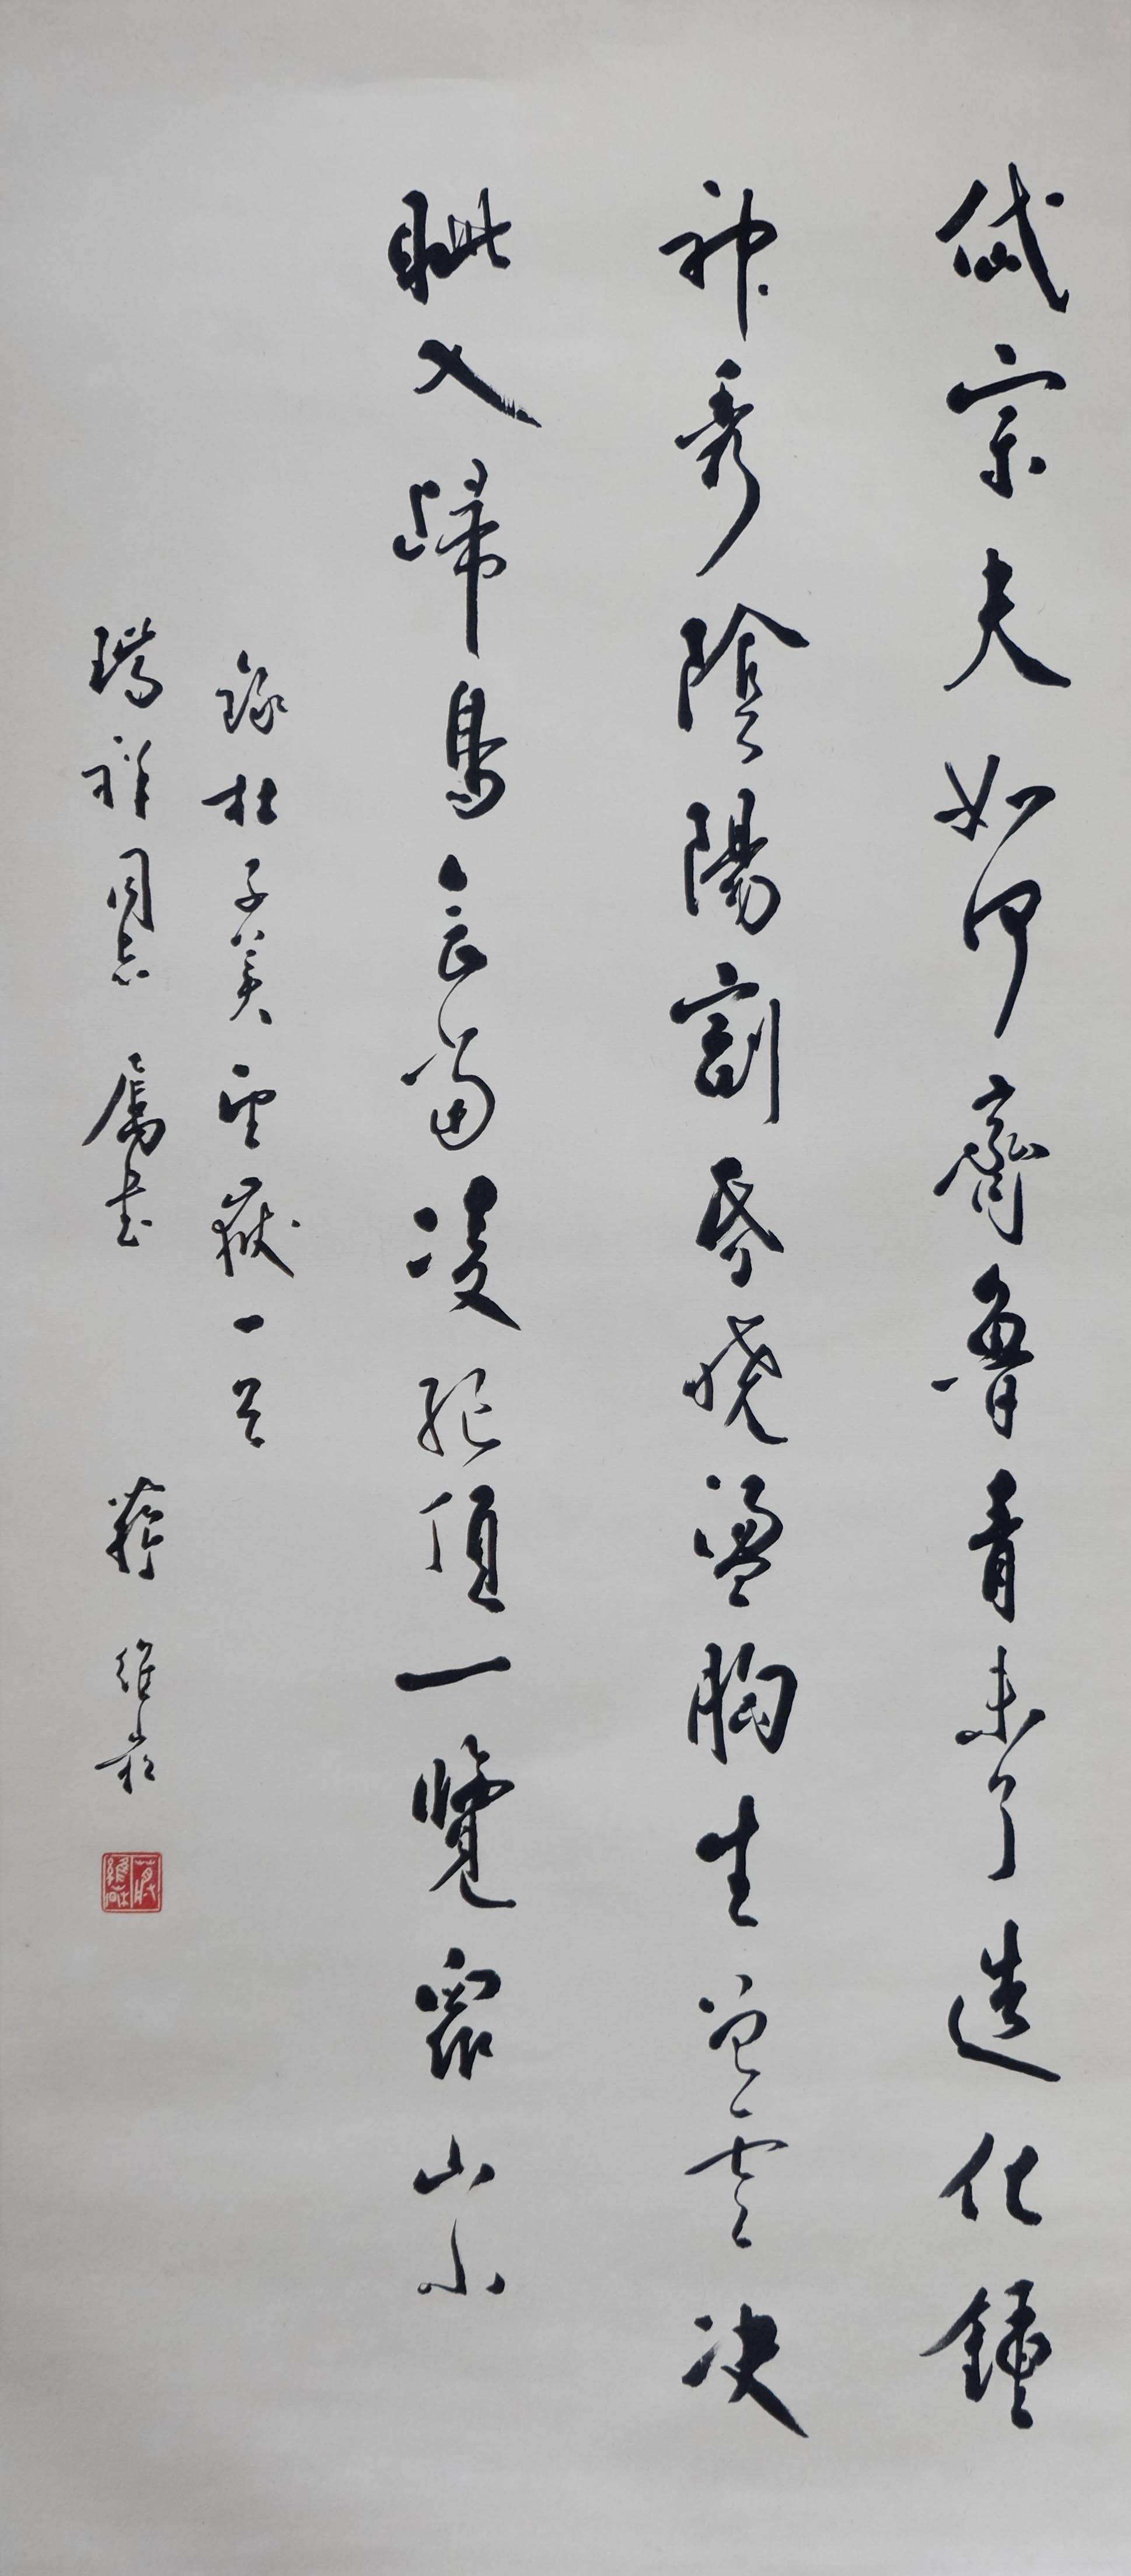 岱宗夫如何齊魯青未了造化鍾
神秀陰陽割昏曉盪胸生曾雲決
眦入歸鳥會當凌絕頂一覽眾山小
錄杜子美望嶽一首
瑞祥同志屬書 蔣維崧
蔣維崧